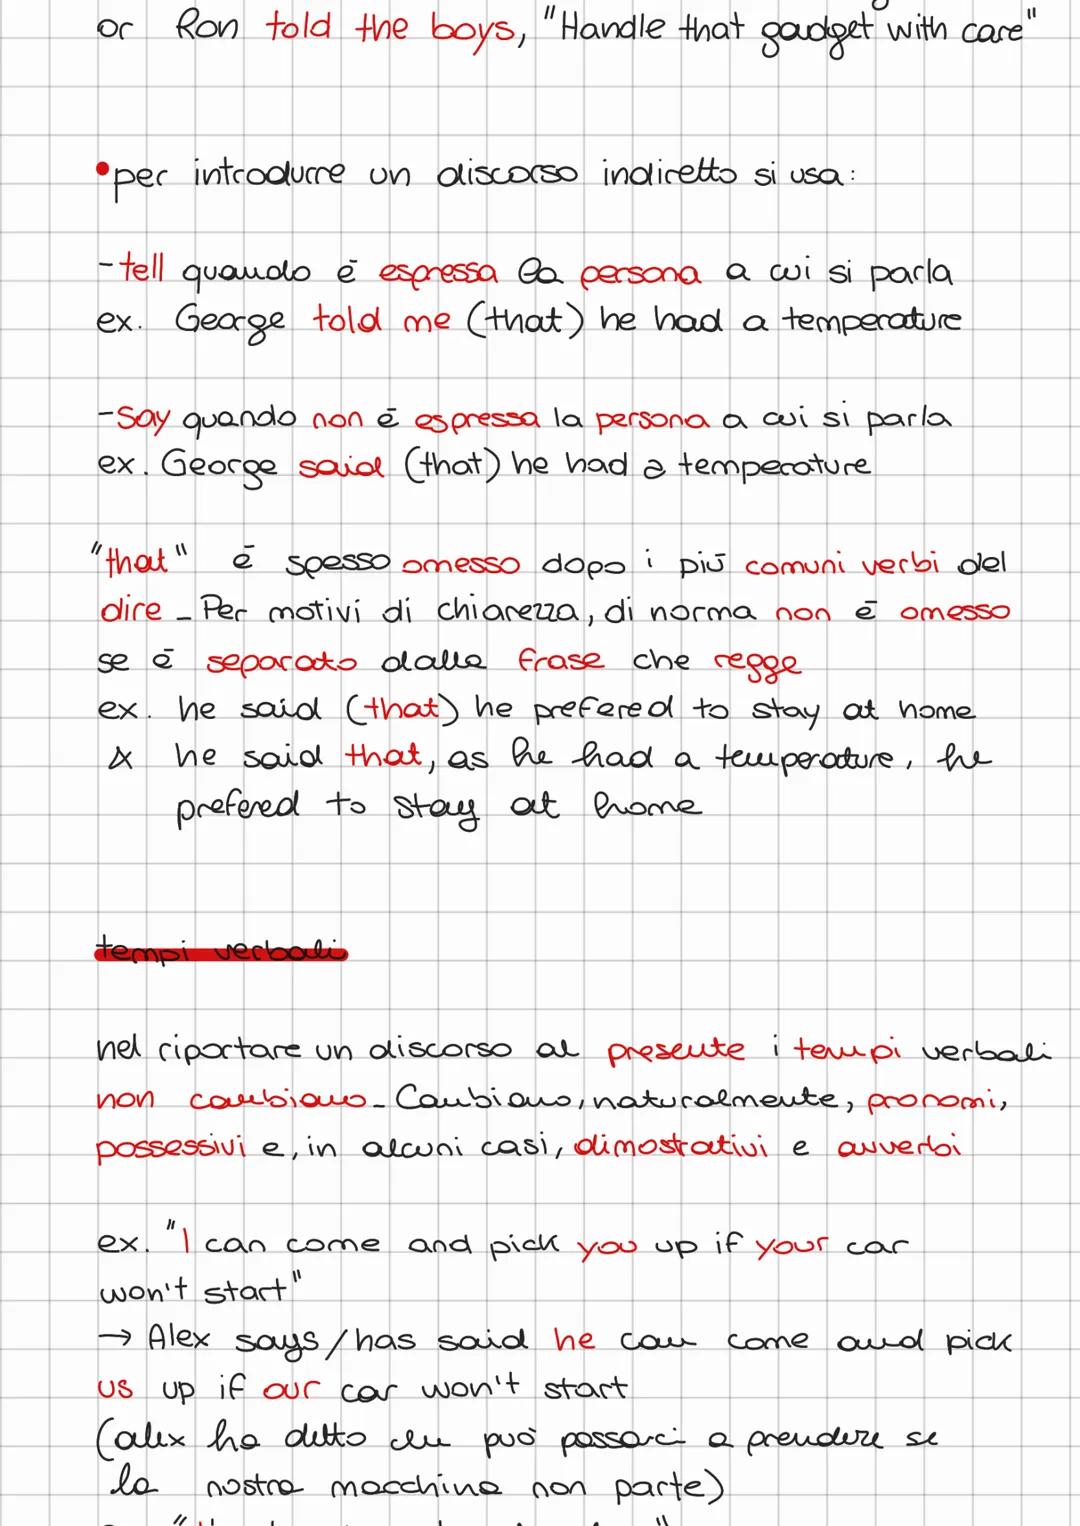 or Ron told the boys, "Handle that gadget with care"
•per introdurre un discorso indiretto si usa:
-tell quando é espressa la persona a cui si parla
ex. George told me (that) he had a temperature
-say quando non é espressa la persona a cui si parla
ex. George said (that) he had a temperature
"that" é spesso omesso dopo i più comuni verbi del
dire - Per motivi di chiarezza, di norma non é omesso
se é separato dalla frase che regge
ex. he said (that) he prefered to stay at home
& he said that, as he had a temperature, he
prefered to stay at home
tempi verbali
nel riportare un discorso al presente i tempi verbali
non cambiano - Cambiano, naturalmente, pronomi,
possessivi e, in alcuni casi, dimostrativi e avverbi
ex. "I can come and pick you up if your car
won't start"
→ Alex says/has said he can come and pick
us up if our car won't start
(alex ha detto che può passarci a prendere se
la nostra macchina non parte)